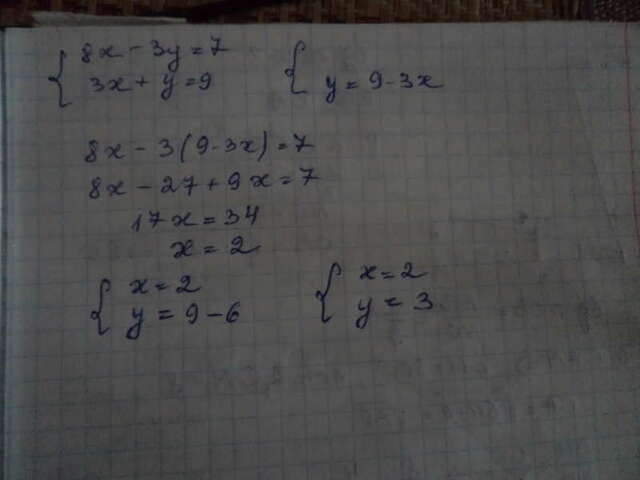 { 8x - 3y = 7
3x + y = 9 { y = 9 - 3x
8x - 3(9 - 3x) = 7
8x - 27 + 9x = 7
17x = 34
x = 2
{ x = 2 { x = 2
y = 9 - 6 y = 3